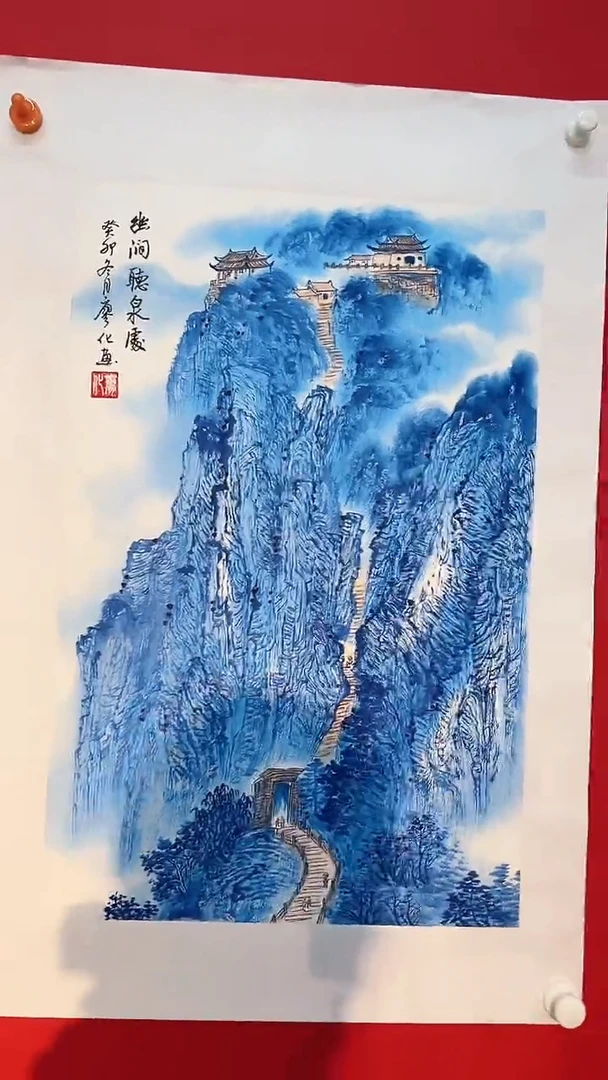 幽澗聽泉處
癸卯冬月廖化画